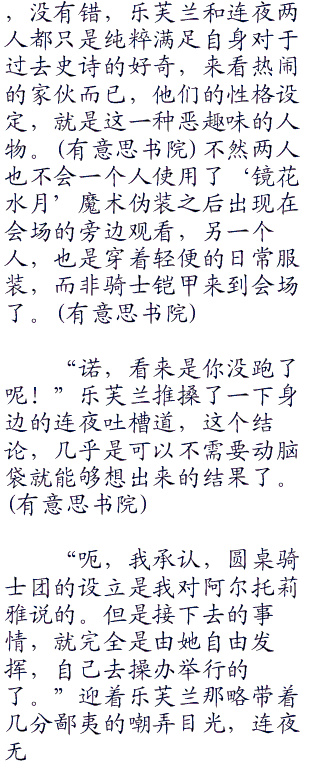 ，没有错，乐芙兰和连夜两
人都只是纯粹满足自身对于
过去史诗的好奇，来看热闹
的家伙而已，他们的性格设
定，就是这一种恶趣味的人
物。(有意思书院)不然两人
也不会一个人使用了‘镜花
水月’魔术伪装之后出现在
会场的旁边观看，另一个
人，也是穿着轻便的日常服
装，而非骑士铠甲来到会场
了。(有意思书院)
“诺，看来是你没跑了
呢！”乐芙兰推搡了一下身
边的连夜吐槽道，这个结
论，几乎是可以不需要动脑
袋就能够想出来的结果了。
(有意思书院)
“呃，我承认，圆桌骑
士团的设立是我对阿尔托莉
雅说的。但是接下去的事
情，就完全是由她自由发
挥，自己去操办举行的
了。”迎着乐芙兰那略带着
几分鄙夷的嘲弄目光，连夜
无